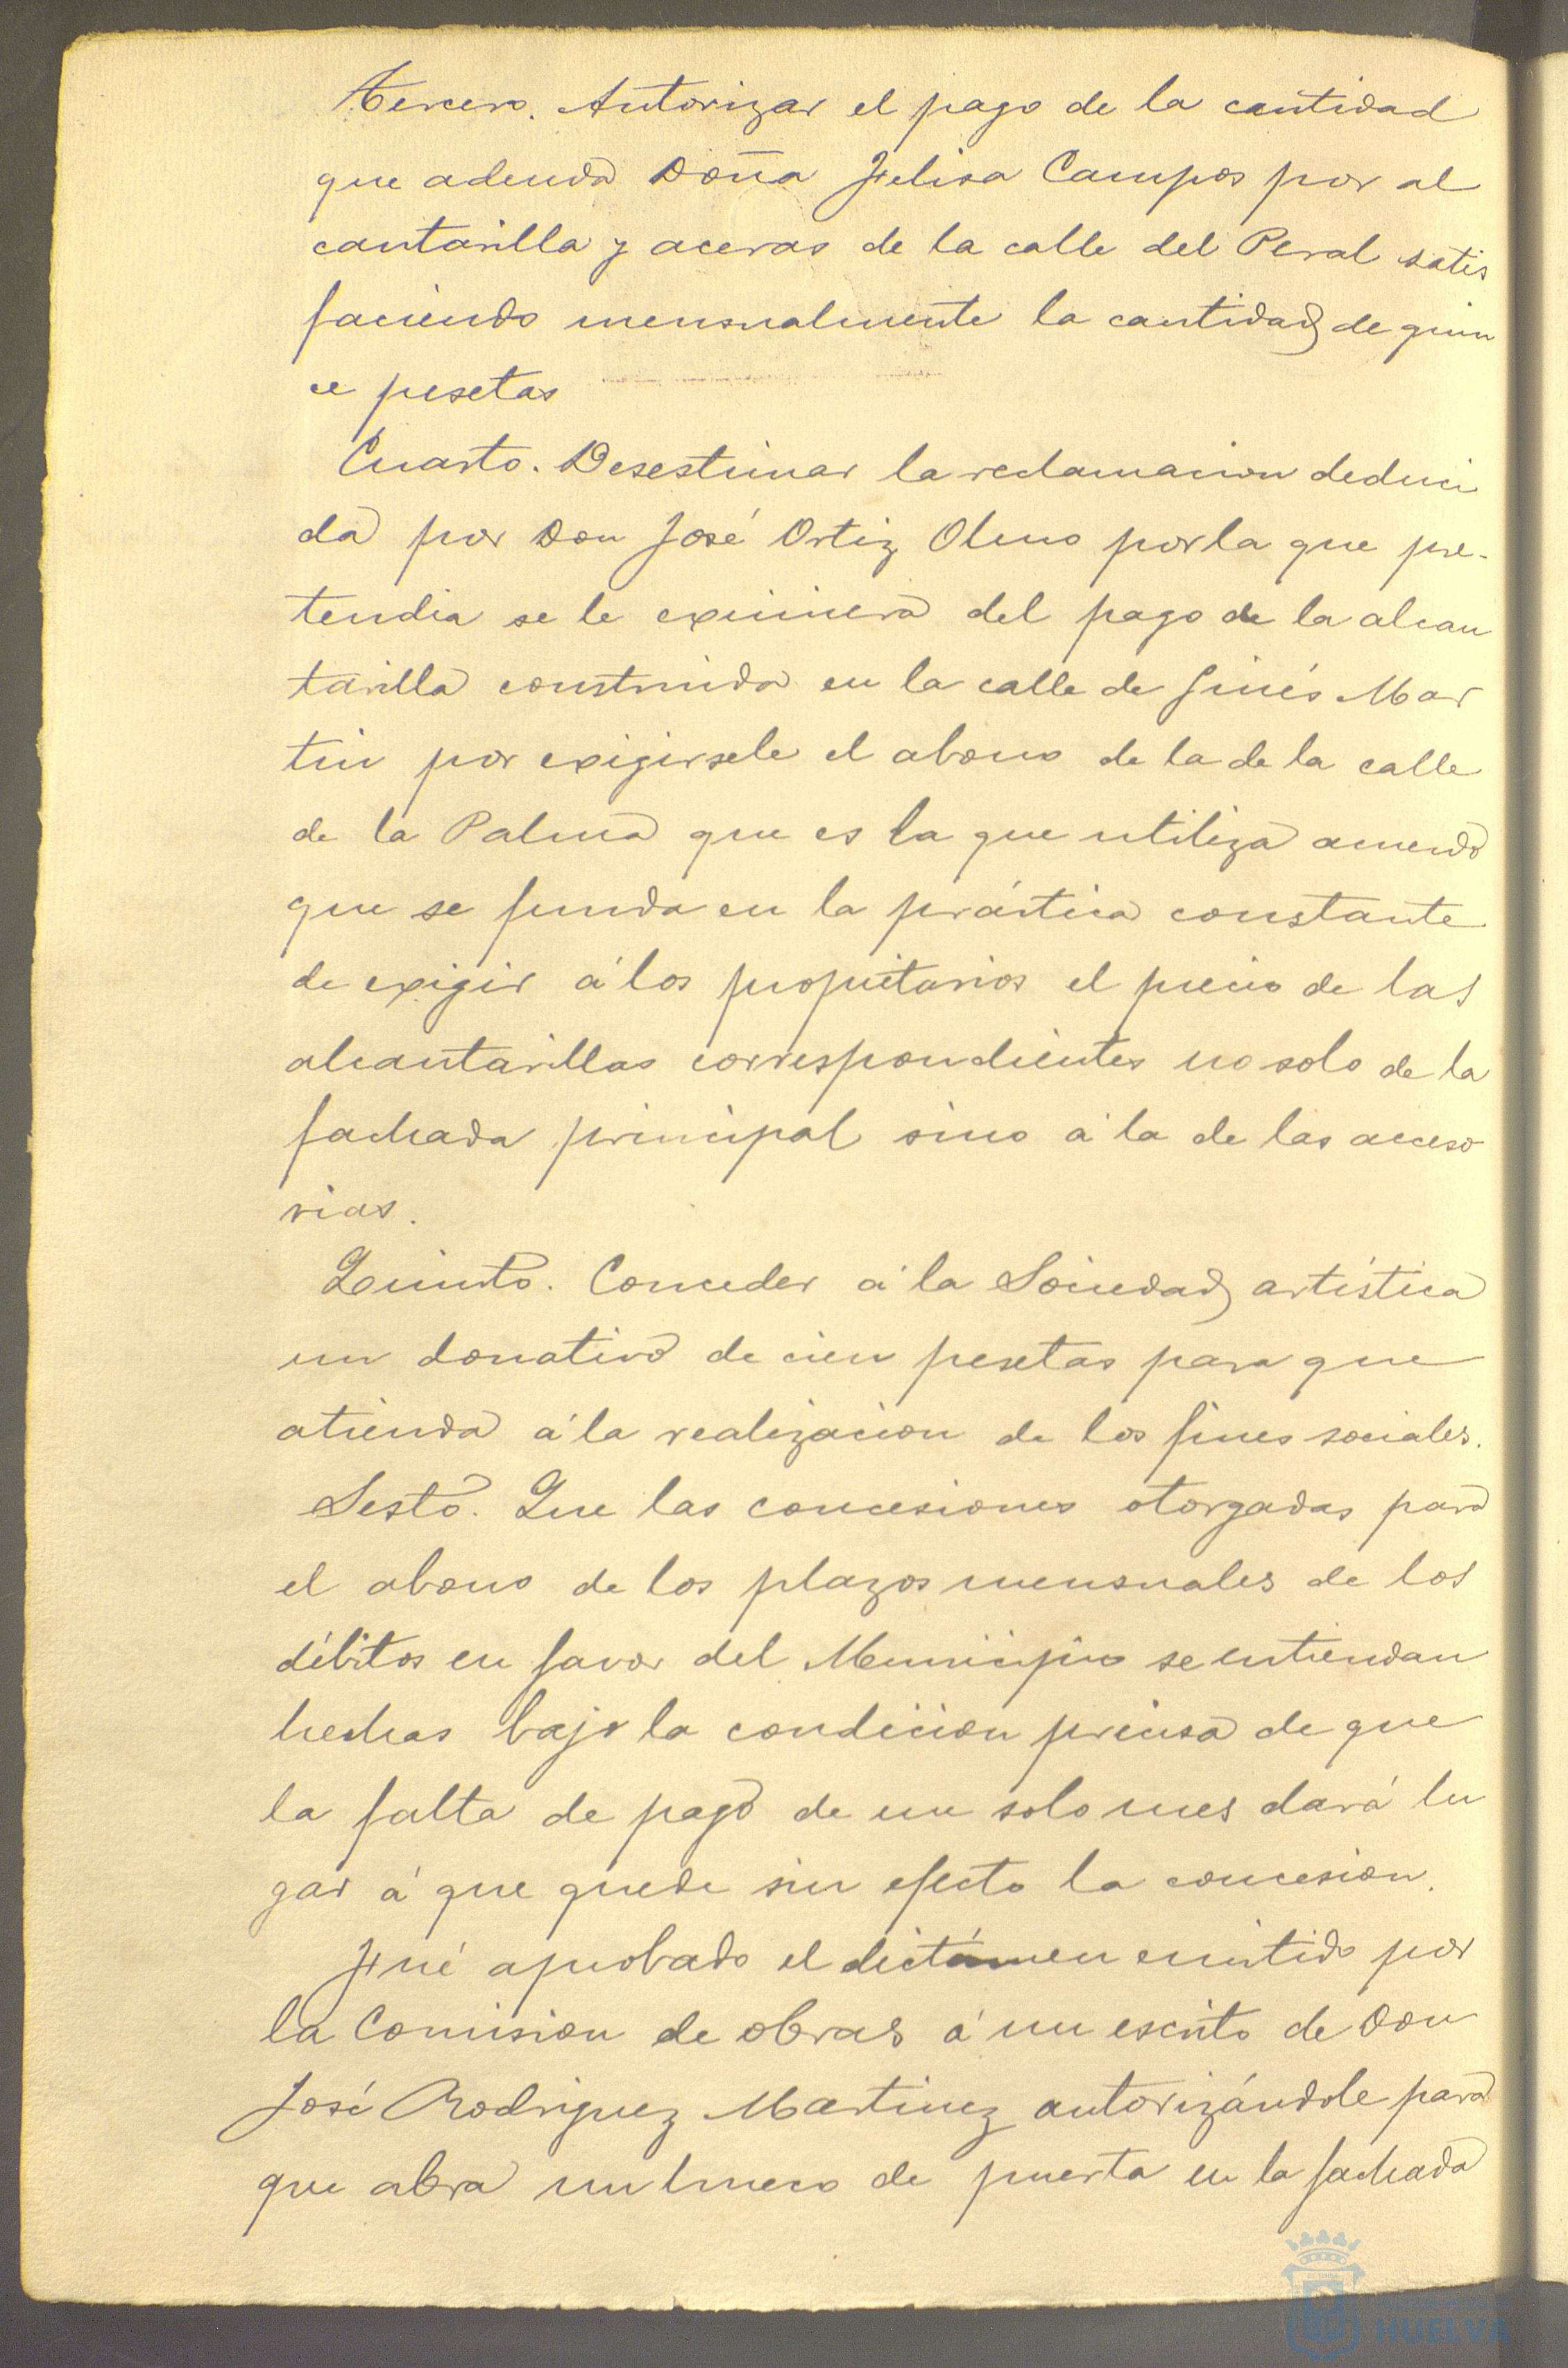 Tercero. Autorizar el pago de la cantidad
que adeuda Doña Felisa Campos por al
cantarilla y aceras de la calle del Peral satis
faciendo mensualmente la cantidad de quin
ce pesetas
Cuarto. Desestimar la reclamacion deduci
da por Don José Ortiz Olmo por la que pre-
tendia se le eximiera del pago de la alcan
tarilla construida en la calle de Ginés Mar
tin por exigirsele el abono de la de la calle
de la Palma que es la que utiliza acuerdo
que se funda en la práctica constante
de exigir á los propietarios el precio de las
alcantarillas correspondientes no solo de la
fachada principal sino á la de las acceso
rias.
Quinto. Conceder á la Sociedad artística
un donativo de cien pesetas para que
atienda á la realizacion de los fines sociales.
Sesto. Que las concesiones otorgadas para
el abono de los plazos mensuales de los
débitos en favor del Municipio se entiendan
hechas bajo la condicion precisa de que
la falta de pago de un solo mes dará lu
gar á que quede sin efecto la concesion.
Fué aprobado el dictámen emitido por
la Comision de obras á un escrito de Don
José Rodriguez Martinez autorizándole para
que abra un hueco de puerta en la fachada
HUELVA